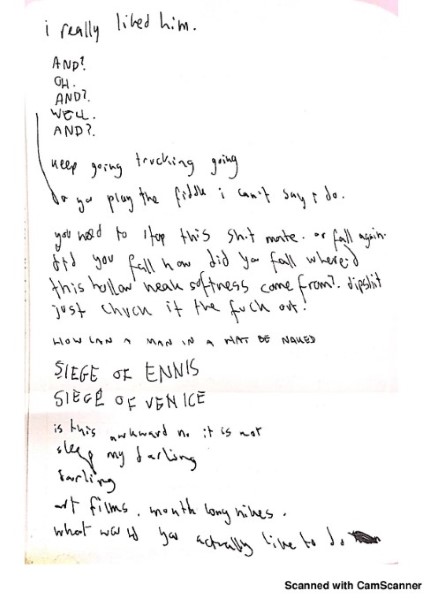 i really liked him.
AND?
OH.
AND?
WELL.
AND?
keep going trucking going
do you play the fiddle i can't say i do.
you need to stop this shit mate. or fall again.
did you fall how did you fall where'd
this hollow weak softness come from? dipshit
just chuck it the fuck out!
HOW CAN A MAN IN A HAT BE NAKED
SIEGE OF ENNIS
SIEGE OF VENICE
is this awkward no it is not
sleep my darling
darling
art films, month long hikes.
what would you actually like to do
Scanned with CamScanner